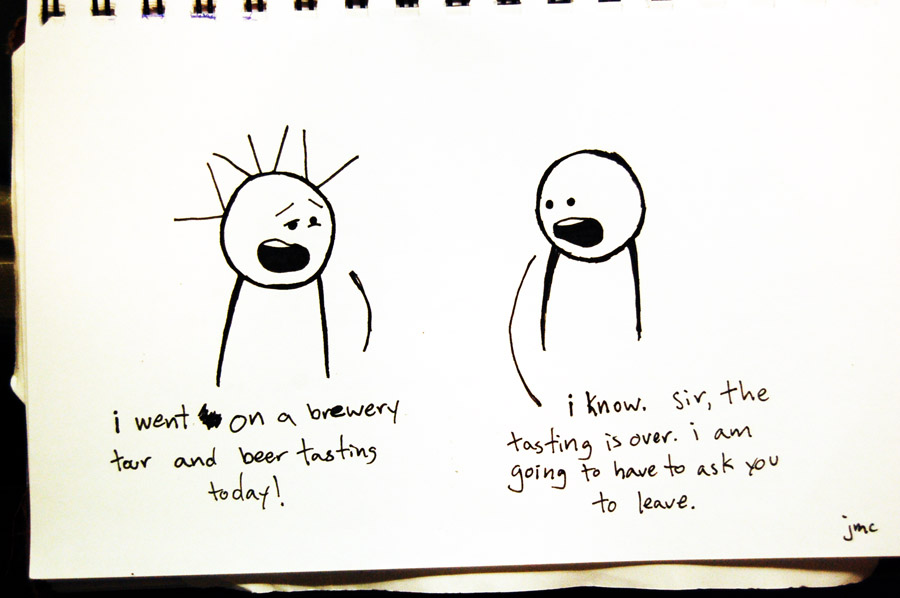 i went on a brewery
tour and beer tasting
today!
i know. sir, the
tasting is over. i am
going to have to ask you
to leave.
jmc